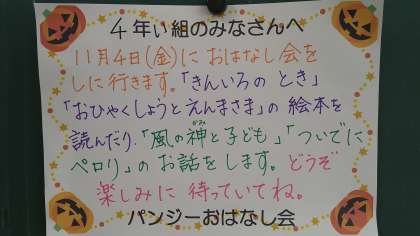 4年い組のみなさんへ
11月4日(金)に おはなし会を
しに行きます。「きんいろの とき」
「おひゃくしょうとえんまさま」の 絵本を
読んだり、「風の神と子ども」「ついでに
ペロリ」の お話をします。どうぞ
楽しみに 待っていてね。
パンジーおはなし会